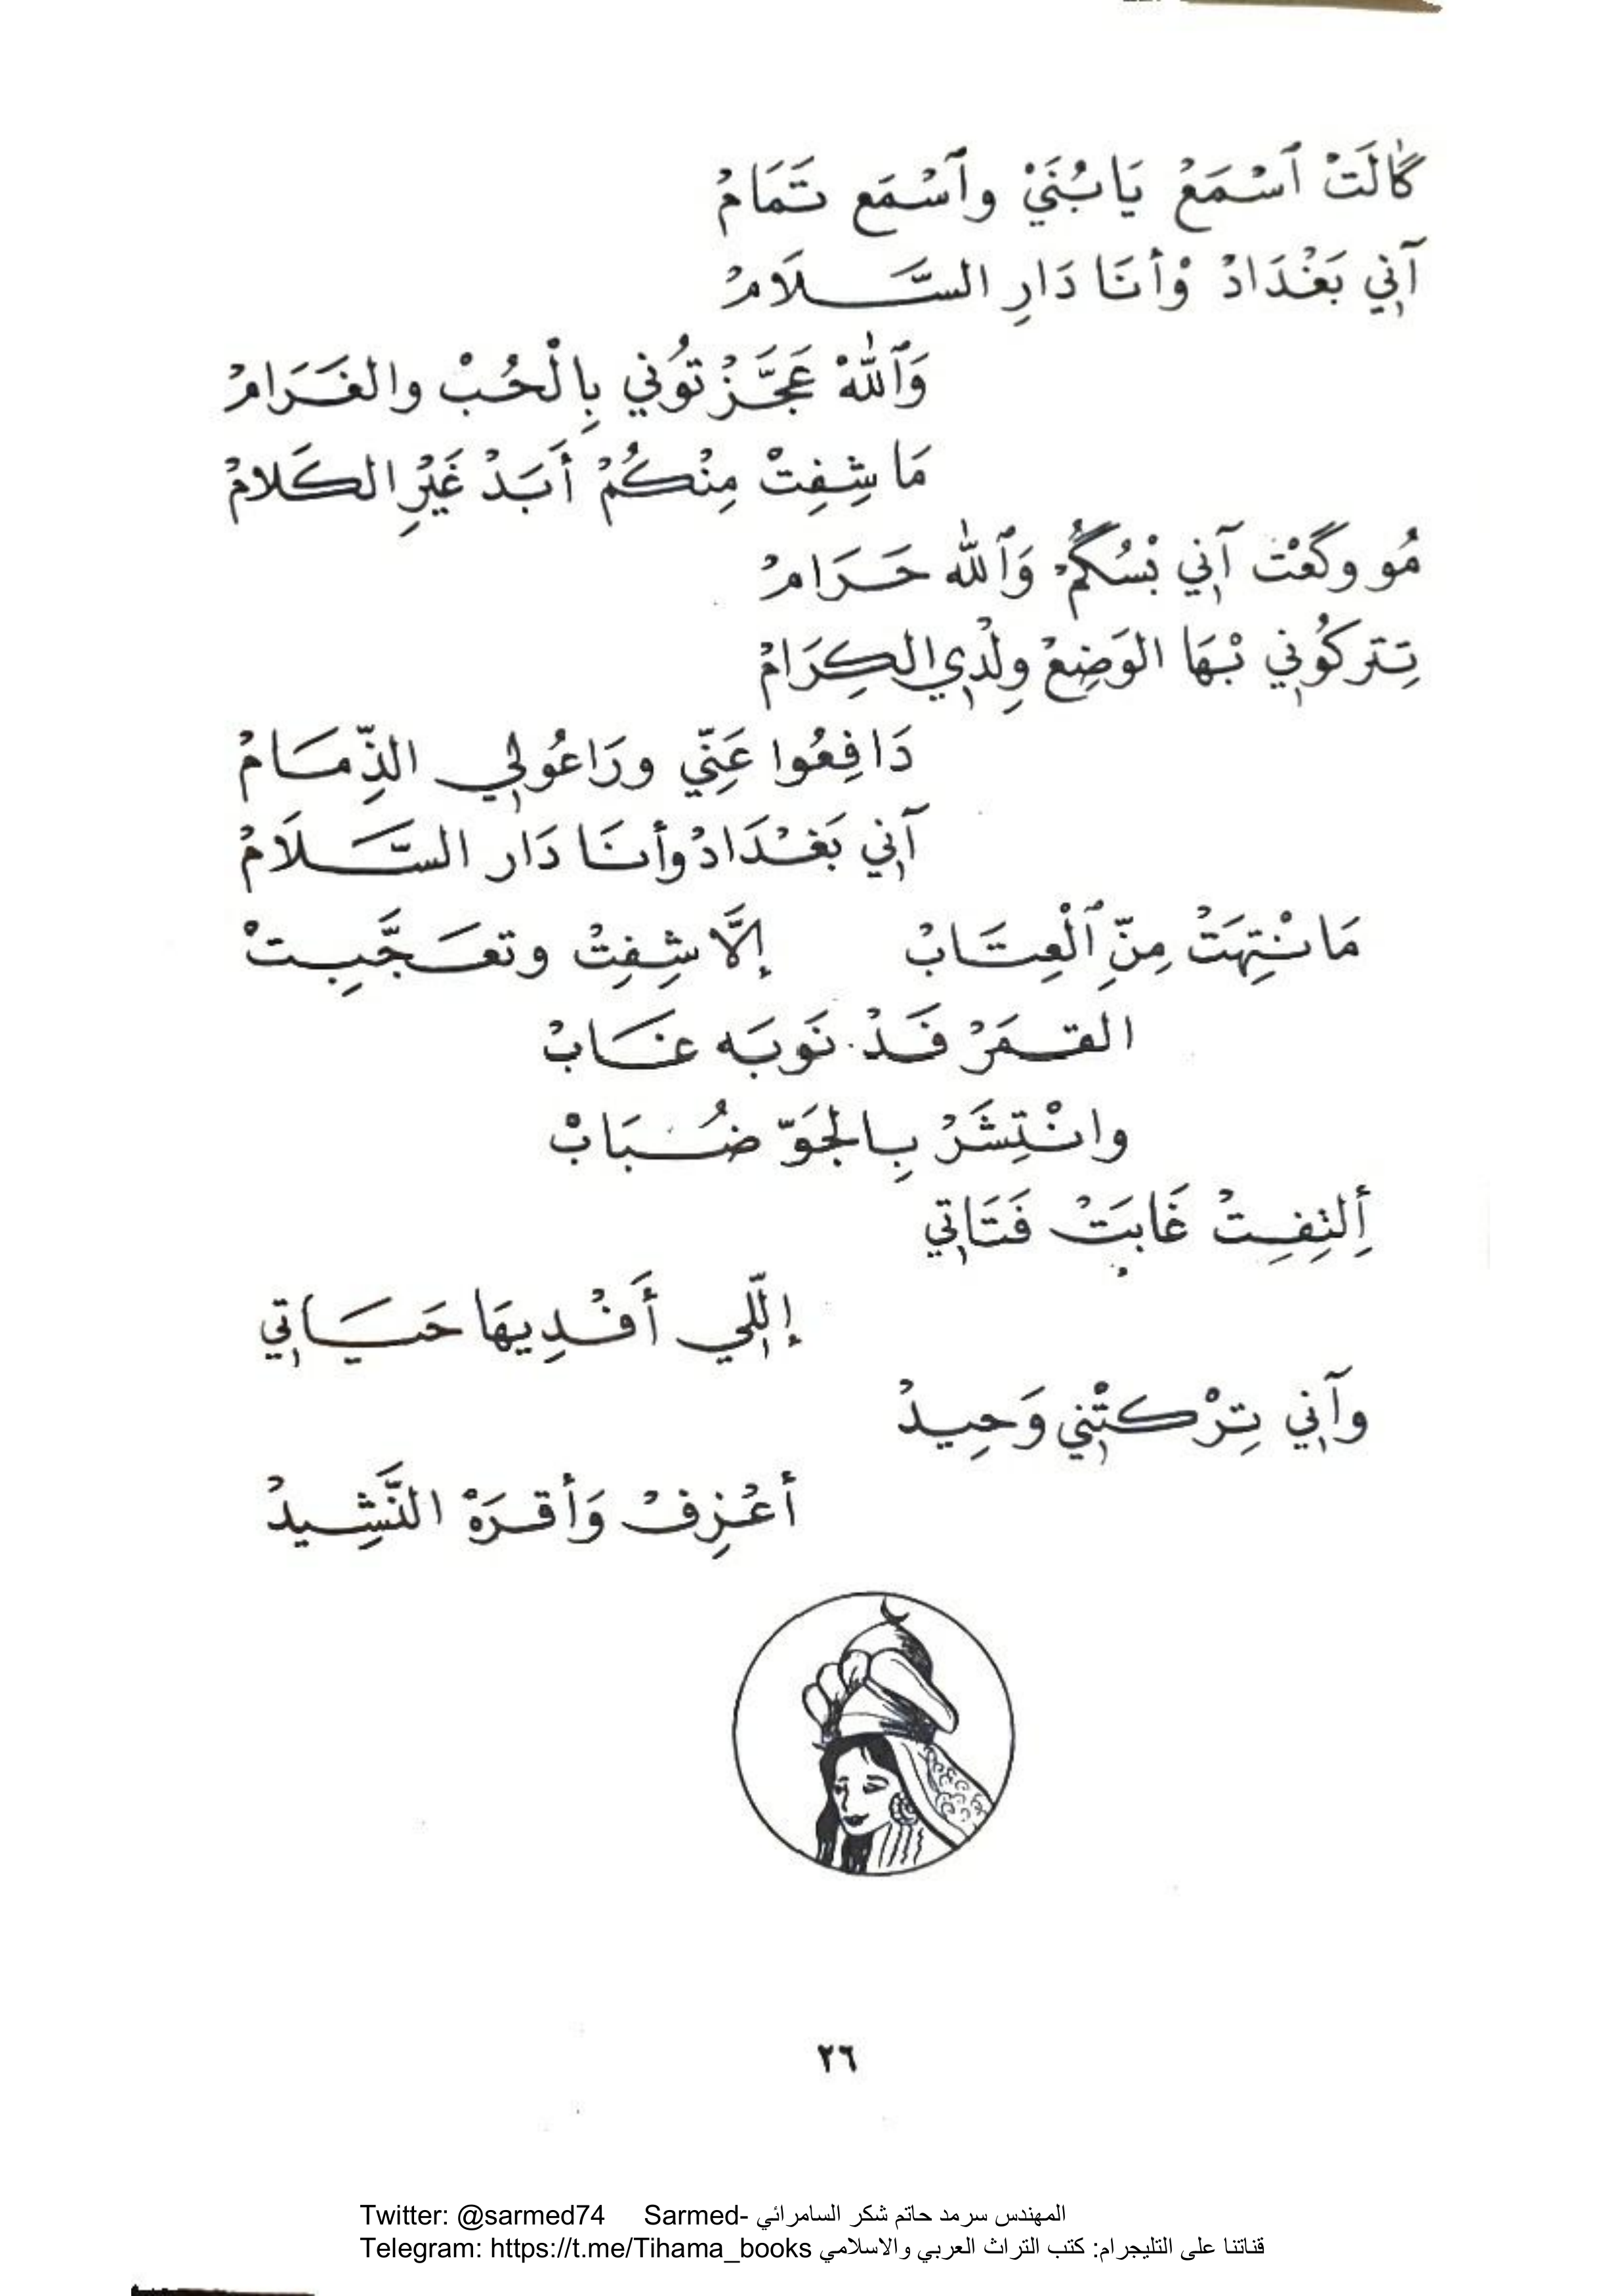 گَالَتْ ٱسْمَعْ يَابُنَيْ وٱسْمَع تَمَامْ
آنِي بَغْدَادْ وْأنَا دَارِ السَّلَامْ
وَٱللهْ عَجَّزْتُوني بِالْحُبْ والغَرَامْ
مَا شِفِتْ مِنْكُمْ أَبَدْ غَيْرِ الكَلامْ
مُو وگَعْت آنِي بْسُگُمْ وَٱلله حَرَامْ
تِتركُونِي بْهَا الوَضِعْ وِلْدِي الكِرَامْ
دَافِعُوا عَنِّي ورَاعُولِي الذِّمَامْ
آنِي بَغْدَادْ وأنَا دَار السَّلَامْ
مَا نْتِهَتْ مِنِّ ٱلْعِتَابْ إلَّا شِفِتْ وتعَجَّبِتْ
القمَرْ فَدْ نَوبَه غَابْ
وانْتِشَرْ بِالجَوّ ضُبَابْ
أِلتِفِتْ غَابَتْ فَتَاتِي
إللِّي أَفْدِيهَا حَيَاتِي
وآنِي تِرْكتْنِي وَحِيدْ
أعْزِفْ وَأقرَهْ النَّشِيدْ
٢٦
Twitter: @sarmed74 Sarmed- المهندس سرمد حاتم شكر السامرائي
Telegram: https://t.me/Tihama_books قناتنا على التليجرام: كتب التراث العربي والاسلامي